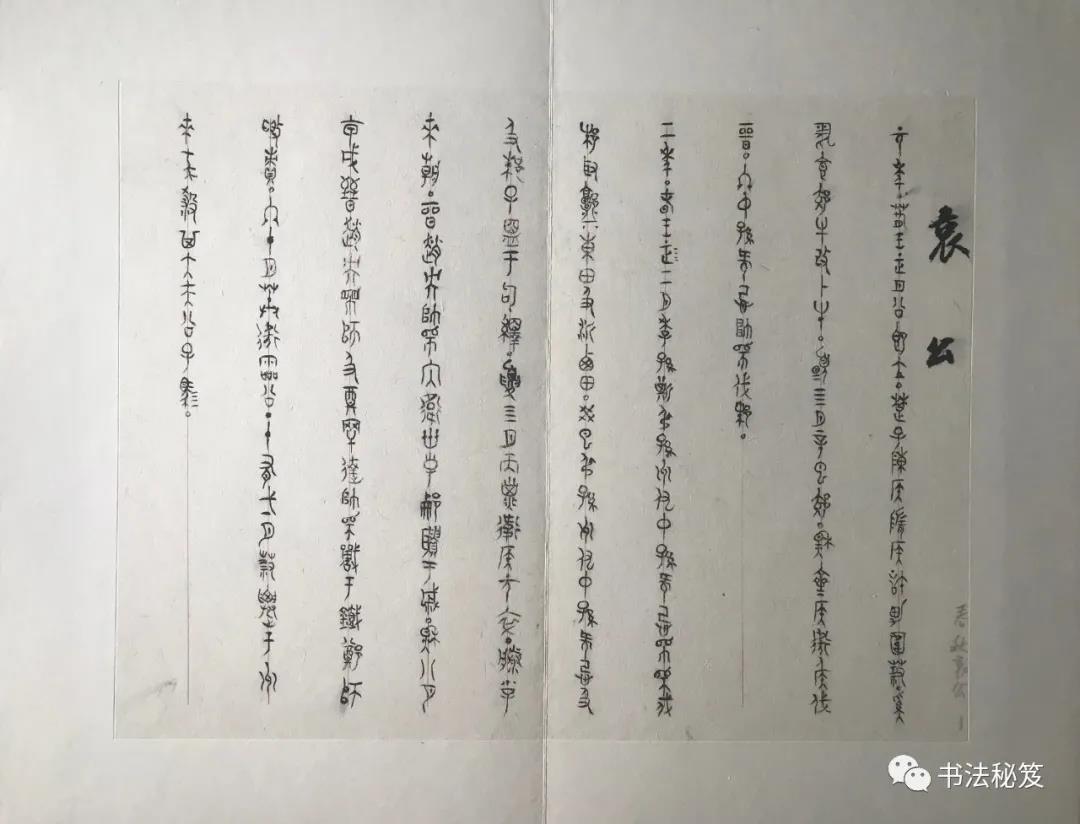 哀公
元年。春王正月公即立。楚子陳侯隨侯許男圍蔡。鼷
鼠食郊牛改卜牛。夏四月辛巳郊。秋齊侯衛侯伐
晉。冬中孫何忌帥師伐邾。
二年。春王二月季孫斯叔孫州仇中孫何忌帥師伐
邾取漷東田及沂西田。癸巳叔孫州仇中孫何忌及
及邾子盟于句繹。夏四月丙子衛侯元卒。滕子
來朝。晉趙鞅帥師內衛世子蒯聵于戚。秋八月
甲戌晉趙鞅帥師及鄭罕達帥師戰于鐵鄭師
敗績。冬十月葬衛靈公。十有一月蔡遷于州
來蔡殺其大夫公子駟。
春秋哀公 一
书法秘笈